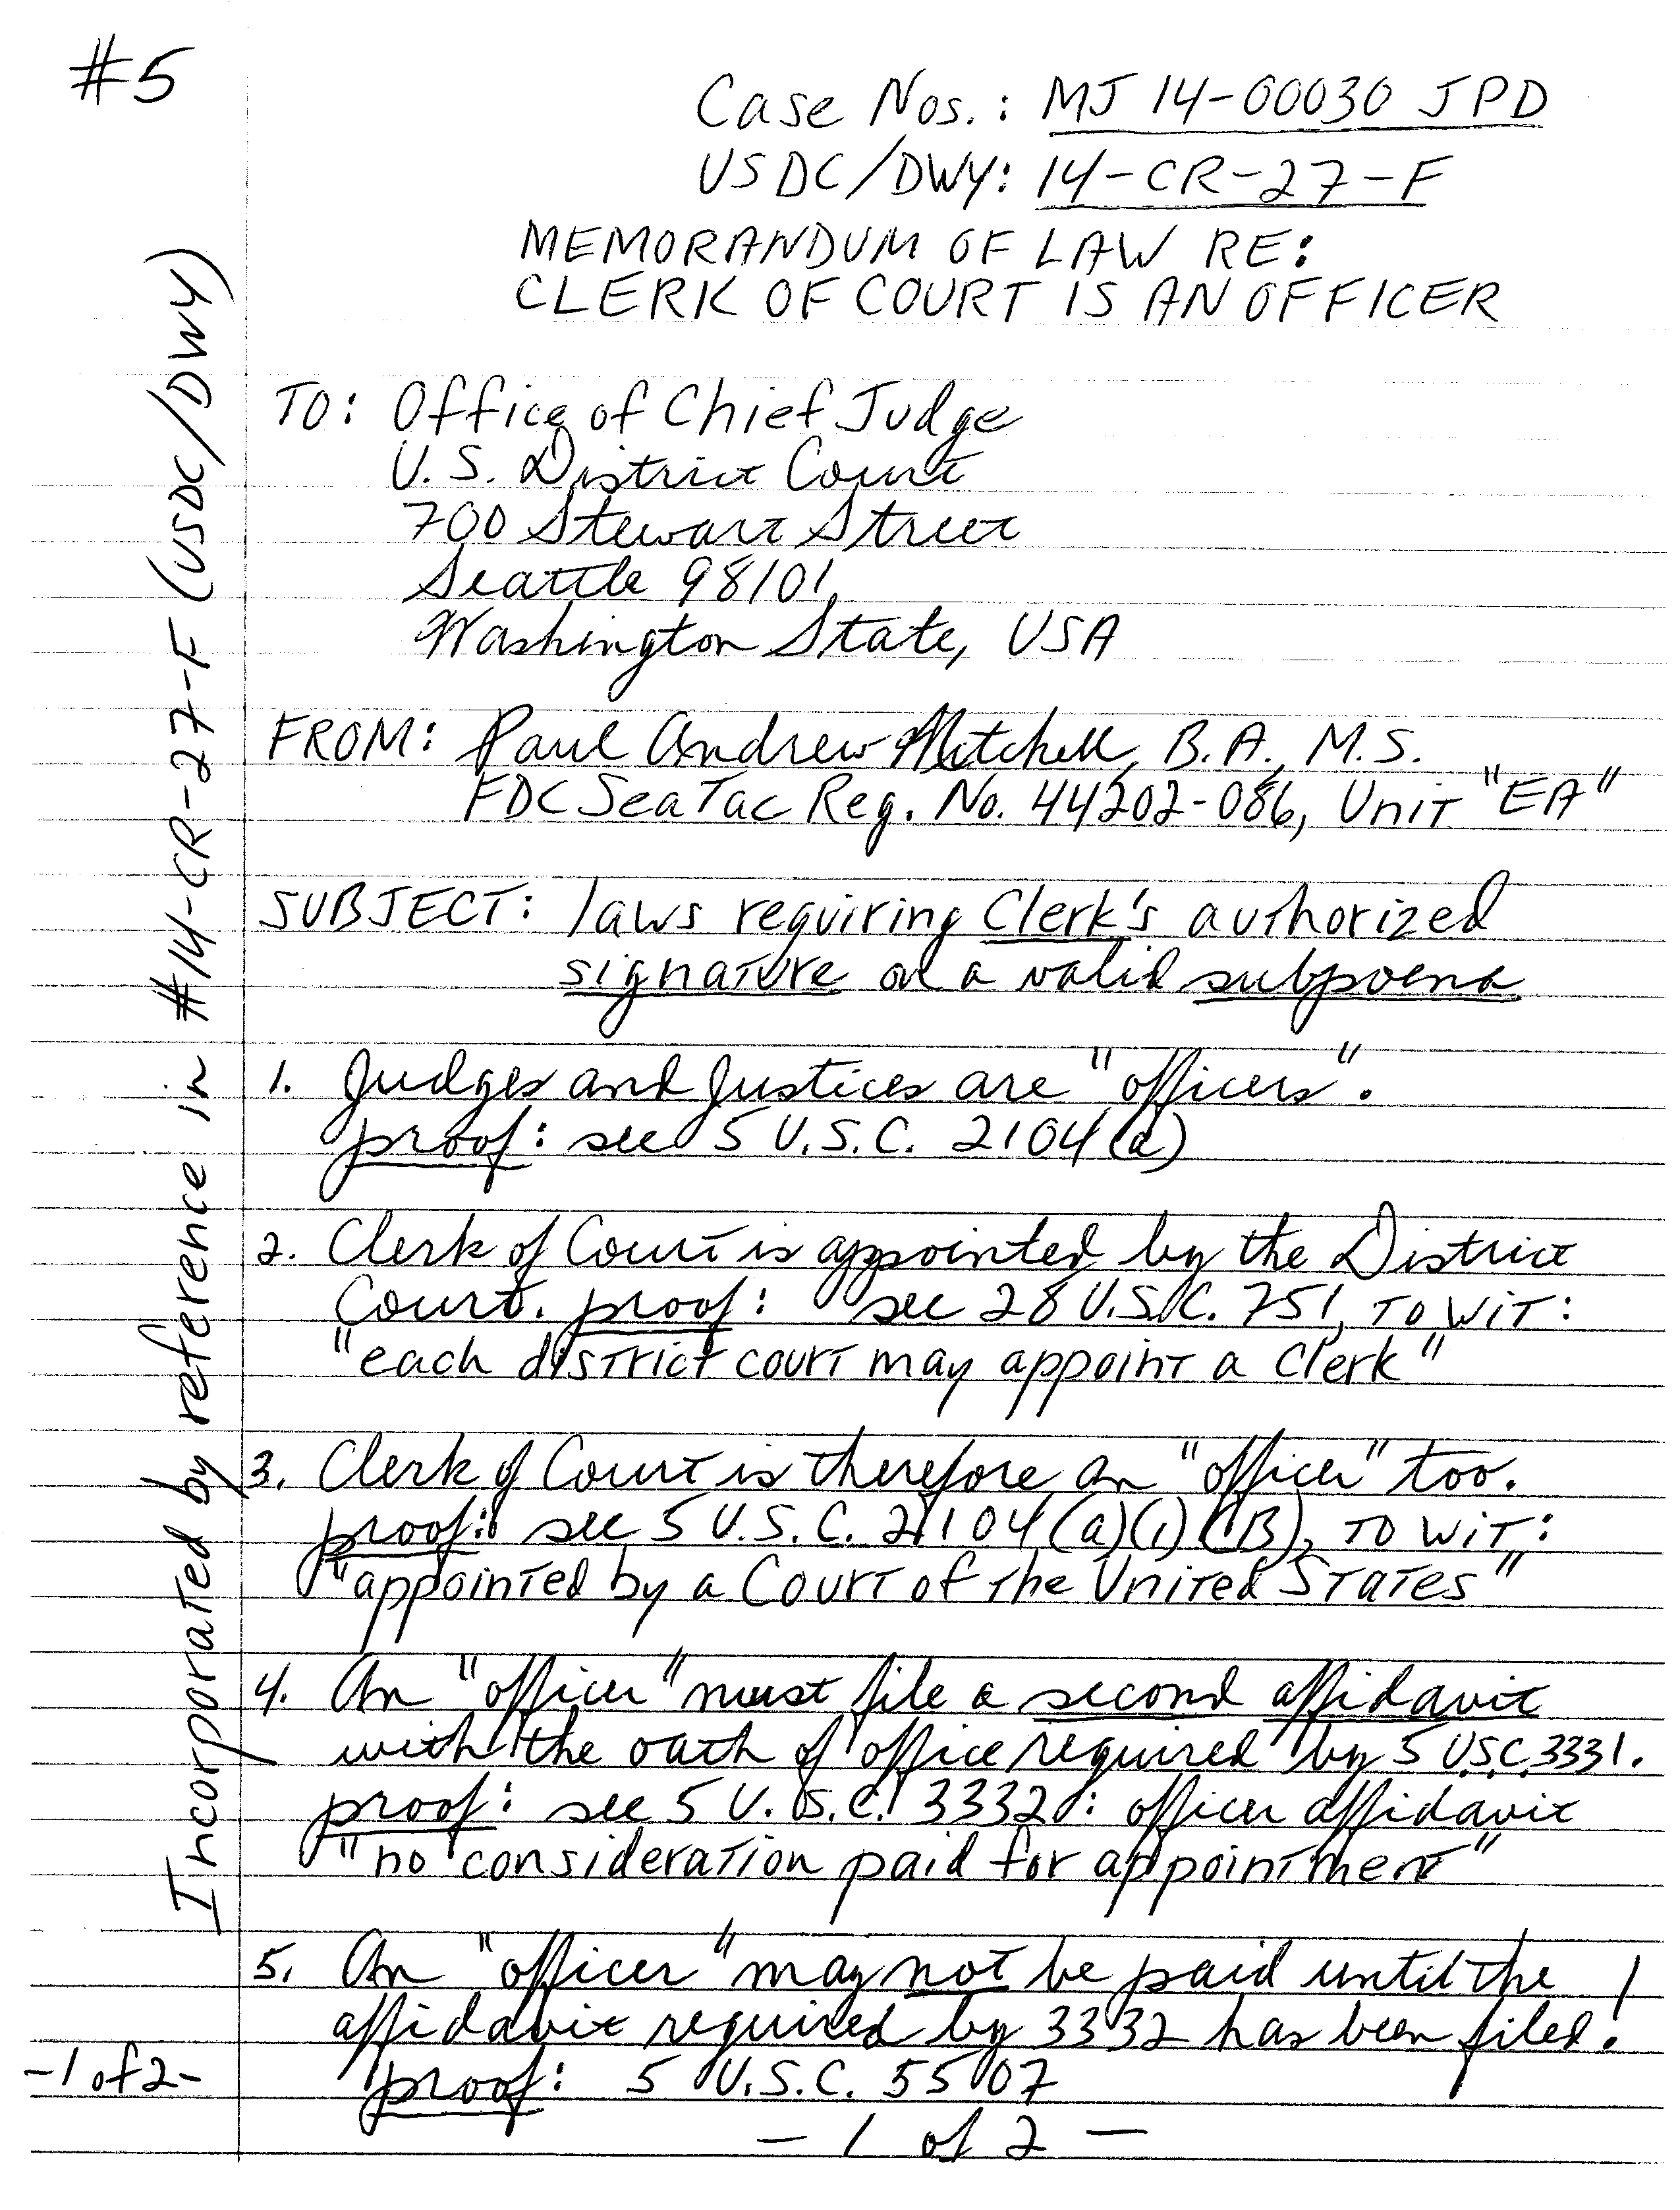 #5
Case Nos.: MJ 14-00030 JPD
USDC/DWY: 14-CR-27-F
MEMORANDUM OF LAW RE:
CLERK OF COURT IS AN OFFICER
TO: Office of Chief Judge
U.S. District Court
700 Stewart Street
Seattle 98101
Washington State, USA
FROM: Paul Andrew Mitchell, B.A., M.S.
FDC SeaTac Reg. No. 44202-086, Unit "EA"
SUBJECT: laws requiring Clerk's authorized
signature on a valid subpoena
1. Judges and Justices are "officers".
proof: see 5 U.S.C. 2104(a)
2. Clerk of Court is appointed by the District
Court. proof: see 28 U.S.C. 751, TO WIT:
"each district court may appoint a clerk"
3. Clerk of Court is therefore an "officer" too.
proof: see 5 U.S.C. 2104(a)(1)(B), TO WIT:
"appointed by a Court of the United States"
4. An "officer" must file a second affidavit
with the oath of office required by 5 U.S.C. 3331.
proof: see 5 U.S.C. 3332: officer affidavit
"no consideration paid for appointment"
5. An "officer" may not be paid until the
affidavit required by 3332 has been filed!
proof: 5 U.S.C. 5507
-1 of 2-
- 1 of 2 -
Incorporated by reference in #14-CR-27-F (USDC/DWY)